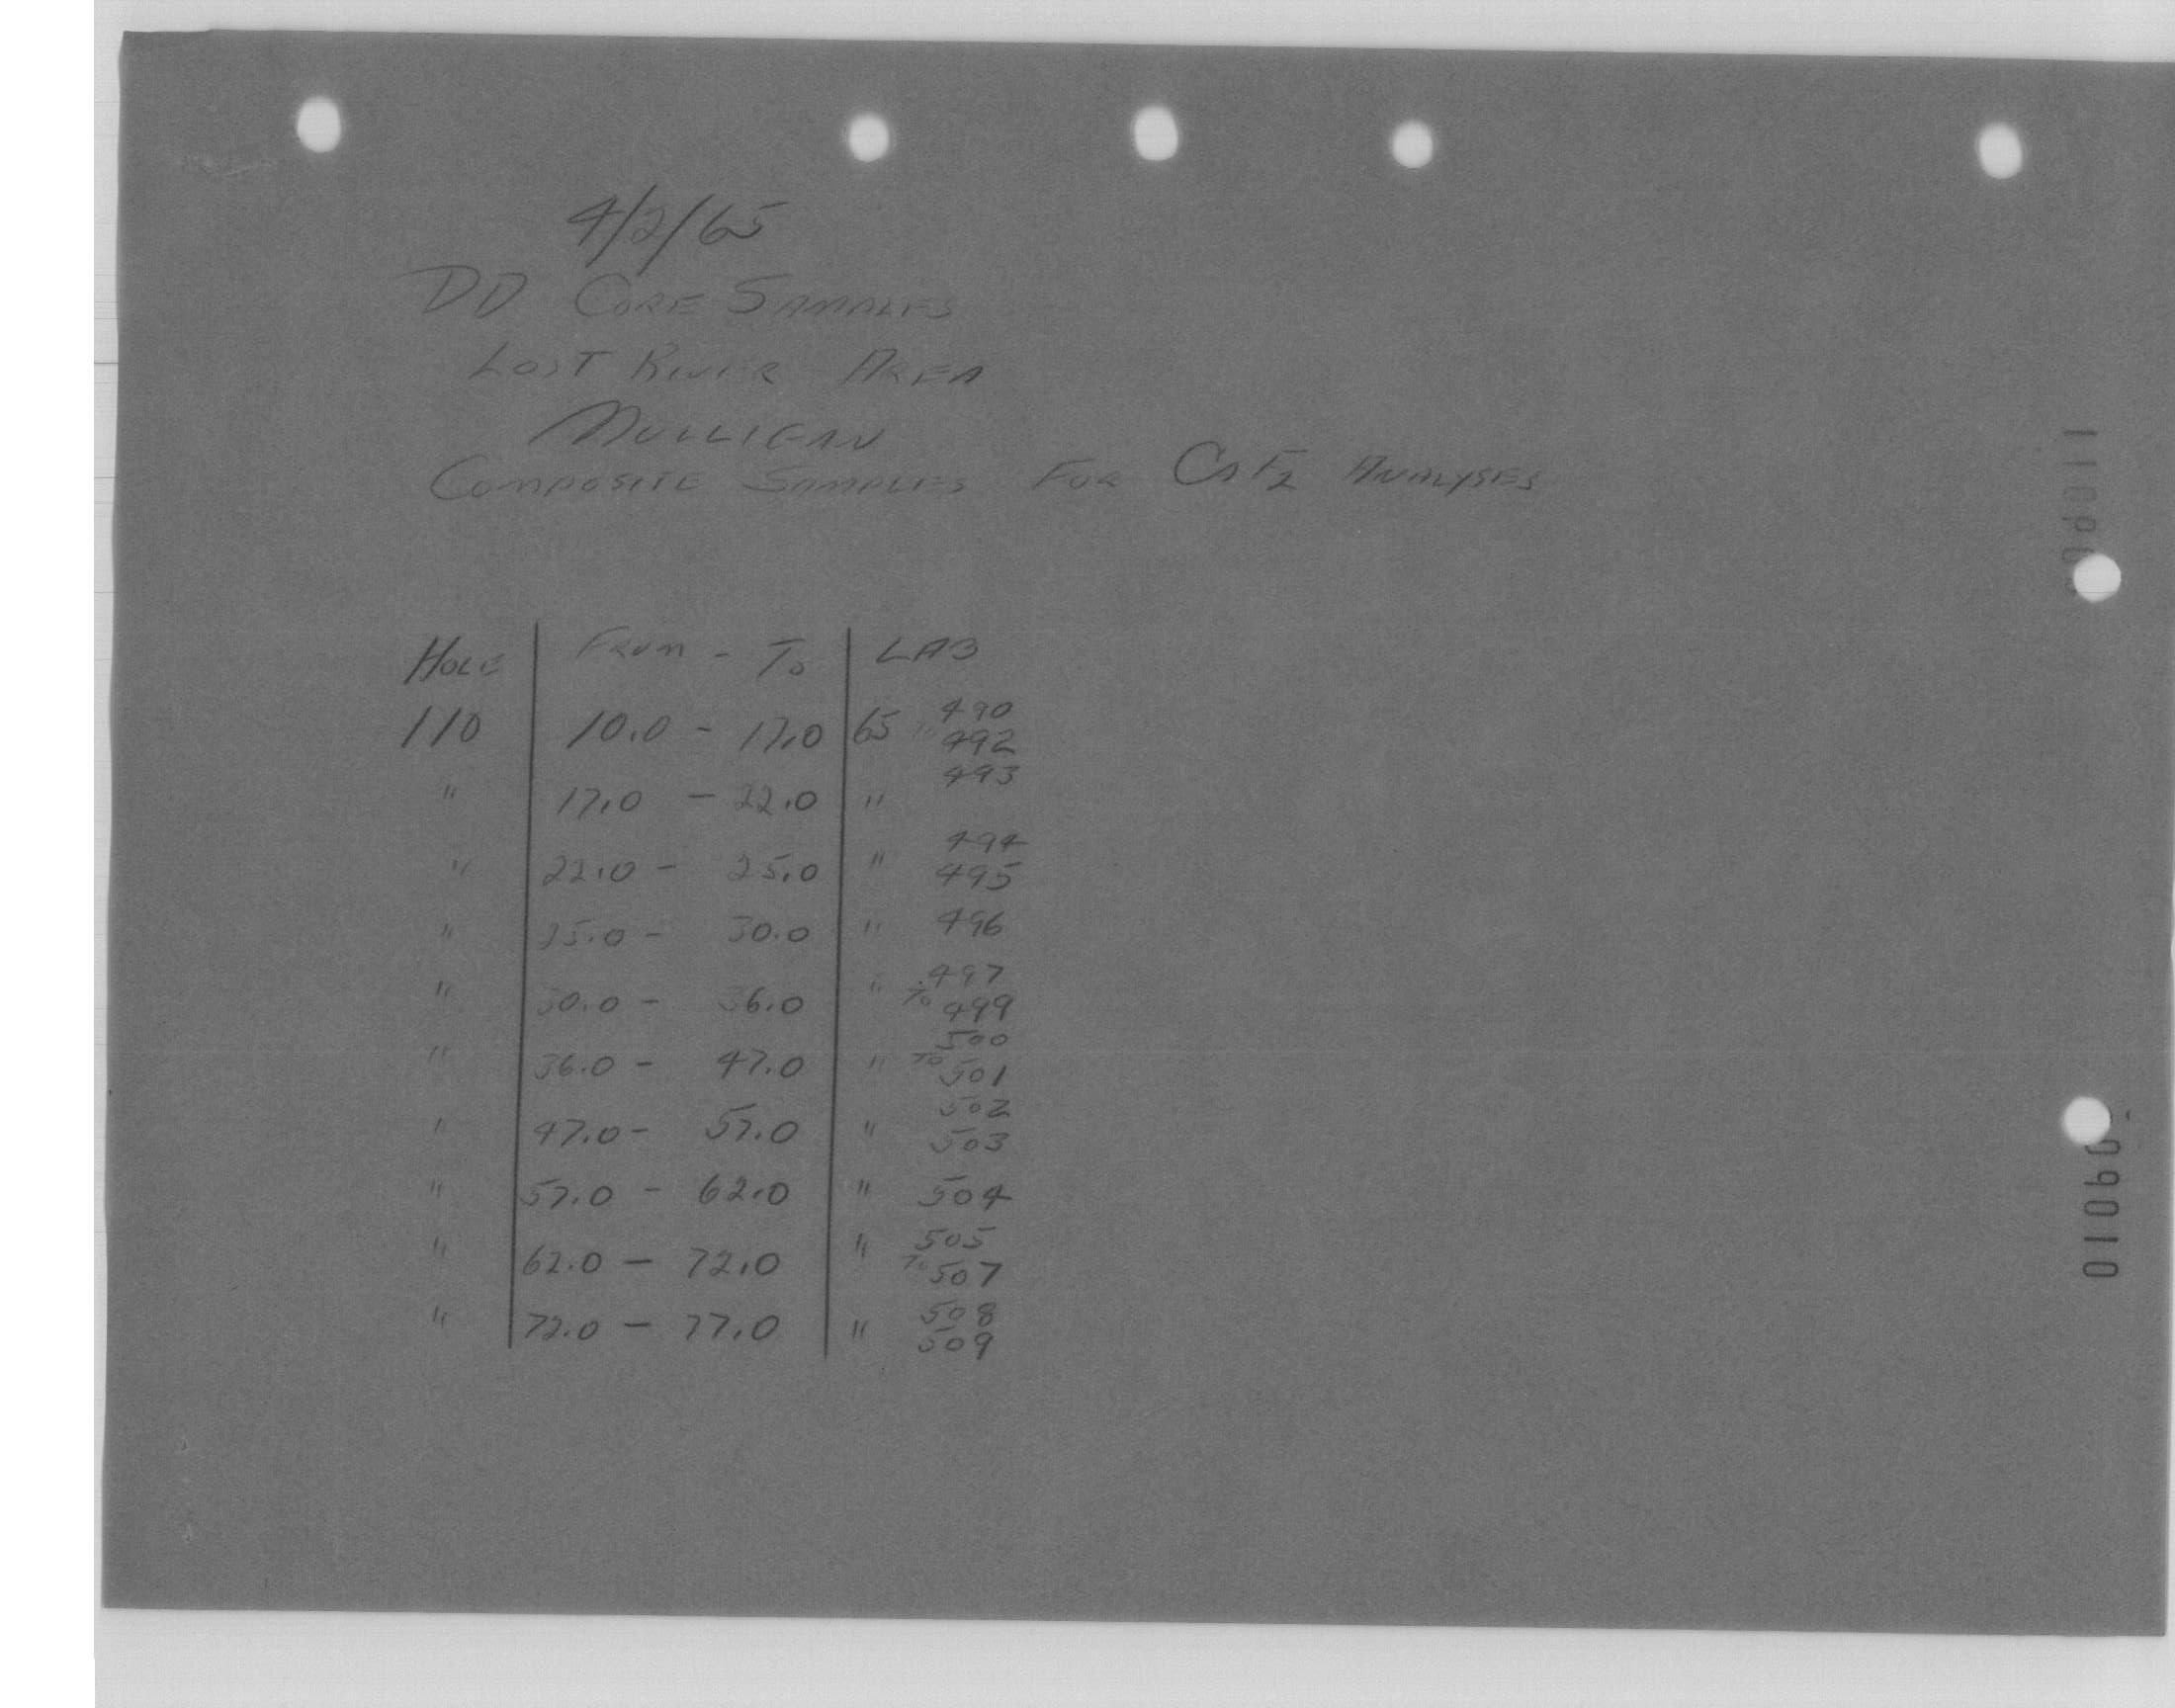 4/2/65
DD CORE SAMPLES
LOST RIVER AREA
MULLIGAN
COMPOSITE SAMPLES FOR CaF2 ANALYSES
HOLE FROM - TO LAB
110 10.0 - 17.0 65 490
492
" 17.0 - 22.0 " 493
" 22.0 - 25.0 " 494
495
" 25.0 - 30.0 " 496
" 30.0 - 36.0 " 497
TO 499
" 36.0 - 47.0 " 500
TO 501
" 47.0 - 57.0 " 502
503
" 57.0 - 62.0 " 504
" 62.0 - 72.0 " 505
TO 507
" 72.0 - 77.0 " 508
509
09010